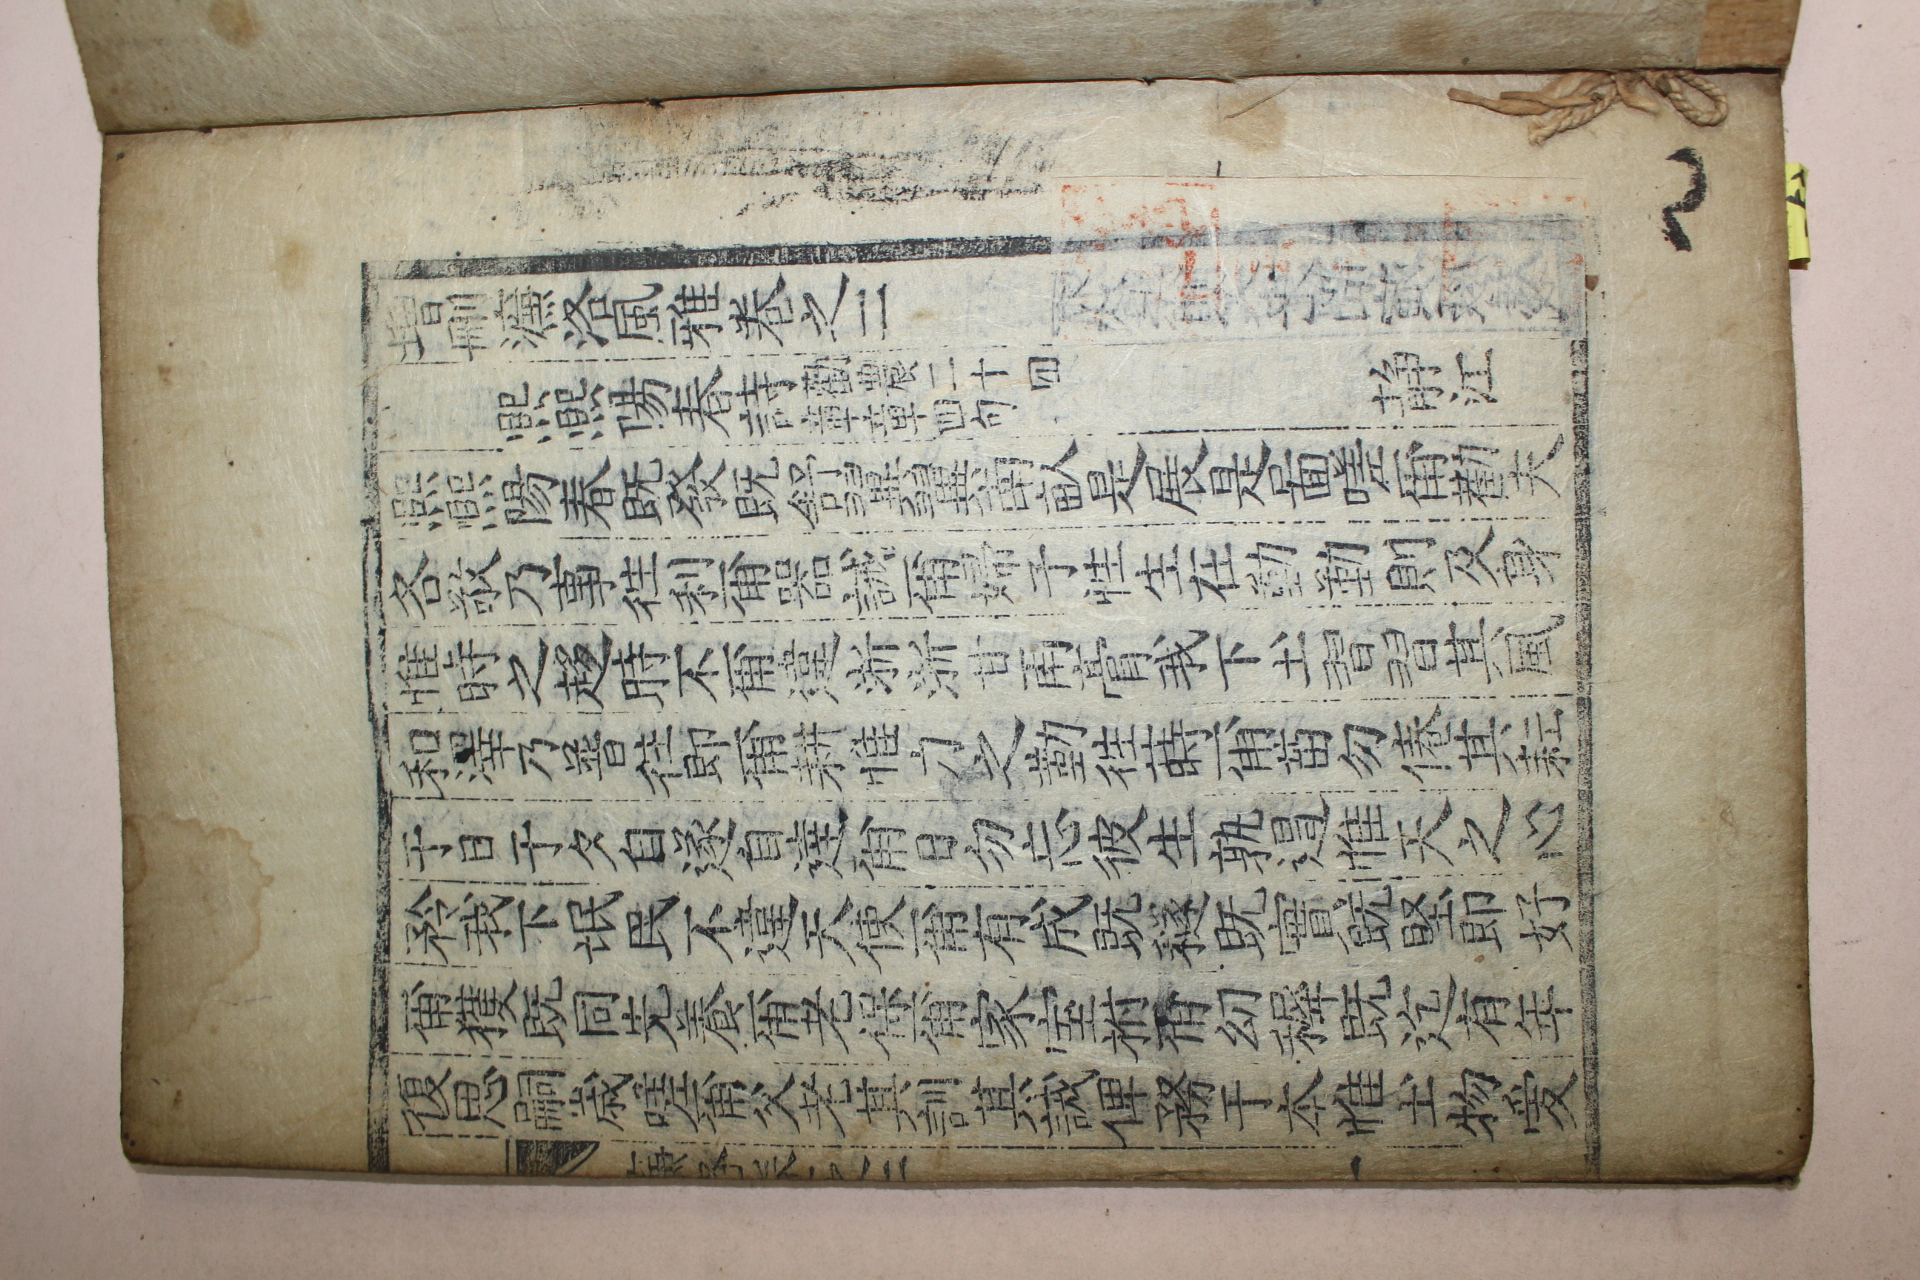 增刪濂洛風雅卷之二
熙熙陽春詩 勸農二十四章章四句 靜江
熙熙陽春既發既舒翼翼南畝是展是啚嗟爾勸夫
各敬乃事往利爾器誡爾婦子性生在勤勤則及身
惟時之趍時不爾違浙浙甘雨膏我下土習習其風
和澤乃普往即爾耕惟力之勤往蒔爾苗勿倦其耘
于日于夕自遂自達爾日勿忘彼生孰遏惟天之心
矜我下氓民不違天使爾有成既穟既實既堅即好
爾獲既同先養爾老保爾家室祔爾幼穉既迄有年
復思嗣歲嗟爾父老其訓其誡俾務于本惟土物愛